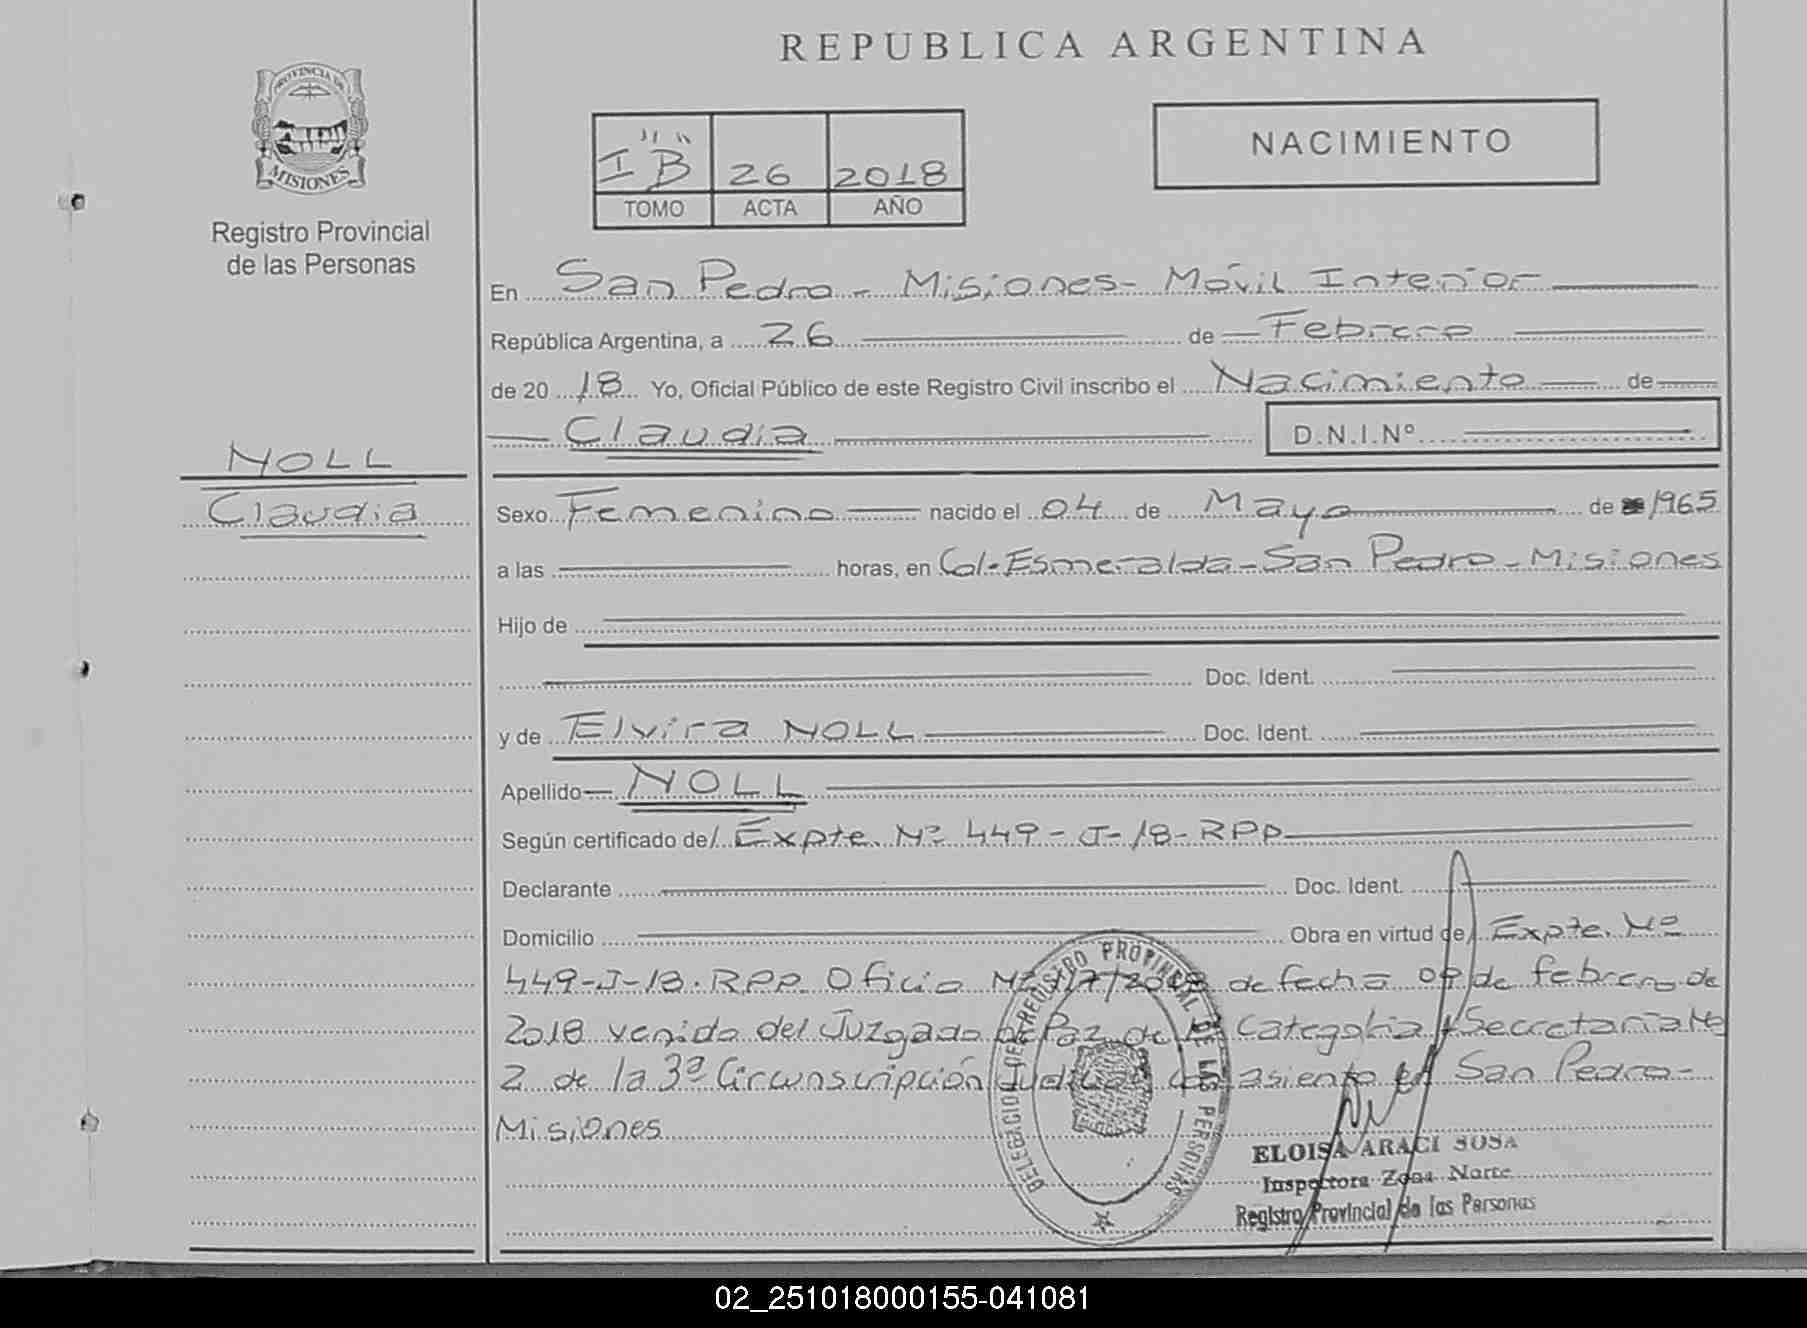 REPUBLICA ARGENTINA
PROVINCIA DE
MISIONES
Registro Provincial
de las Personas
I "B" 26 2018
TOMO ACTA AÑO
NACIMIENTO
En San Pedro - Misiones - Móvil Interior
República Argentina, a 26 de Febrero
de 20 18 Yo, Oficial Público de este Registro Civil inscribo el Nacimiento de
Claudia D.N.I.Nº
NOLL
Claudia
Sexo Femenino nacido el 04 de Mayo de 1965
a las horas, en Col. Esmeralda - San Pedro - Misiones
Hijo de
Doc. Ident.
y de Elvira NOLL Doc. Ident.
Apellido NOLL
Según certificado de/ Expte. Nº 449-J-18-RPP
Declarante Doc. Ident.
Domicilio Obra en virtud de/ Expte. Nº
449-J-18. RPP. Oficio Nº de fecha 09 de febrero de
2018 venido del Juzgado de Paz de Categoria Secretaria Nº
2 de la 3ª Circunscripción Judicial con asiento en San Pedro -
Misiones
DELEGACION DEL REGISTRO PROVINCIAL DE LAS PERSONAS
ELOISA ARACI SOSA
Inspectora Zona Norte
Registro Provincial de las Personas
02_251018000155-041081